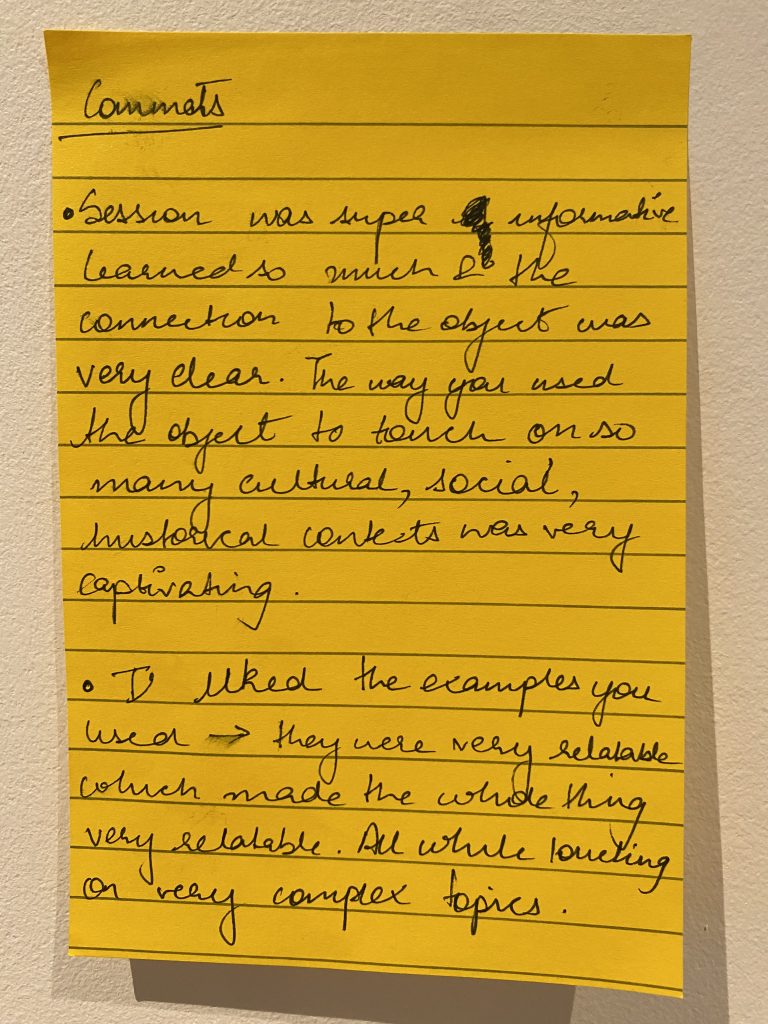 Comments
• Session was super informative
learned so much & the
connection to the object was
very clear. The way you used
the object to touch on so
many cultural, social,
historical contexts was very
captivating.
• I liked the examples you
used → they were very relatable
which made the whole thing
very relatable. All while touching
on very complex topics.